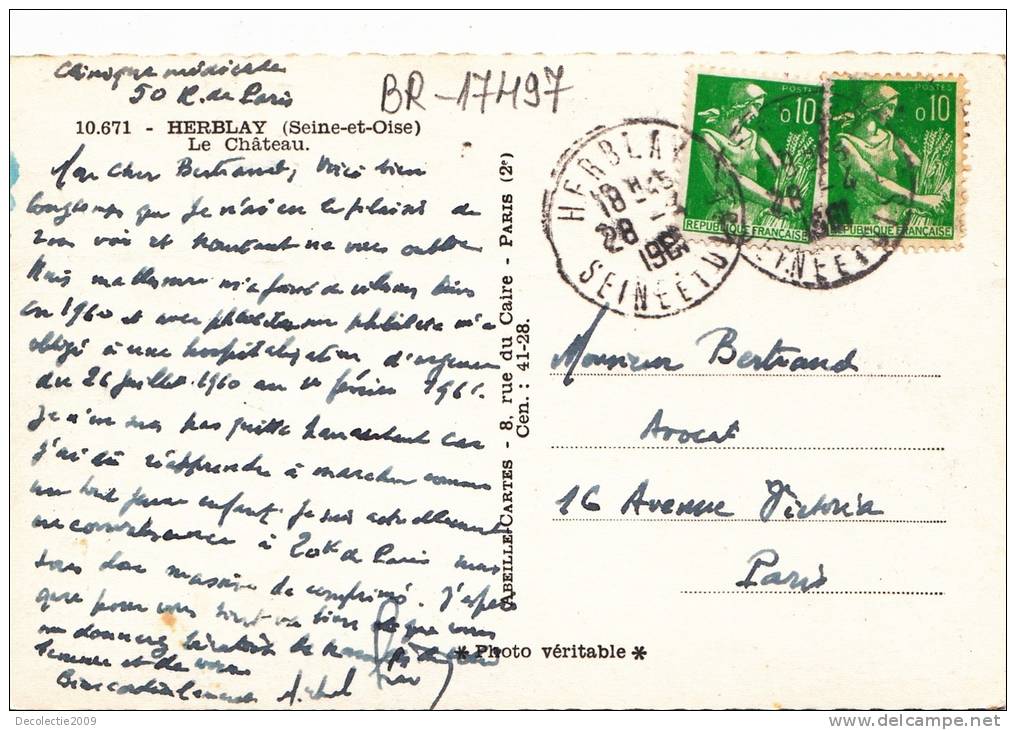 Clinique médicale
50 R. de Paris
BR-17497
10.671 - HERBLAY (Seine-et-Oise)
Le Château.
Mon cher Bertrand, Voici bien
longtemps que je n'ai eu le plaisir de
vous voir et pourtant ne vous oublie
Mais
en 1960 et avec
obligé à une hospitalisation d'urgence
du 26 juillet 1960 au 1er février 1961.
Je n'en suis pas quitte pour autant car
j'ai dû réapprendre à marcher comme
un tout jeune enfant. Je suis actuellement
en convalescence à 20k de Paris
dose massive de comprimés. J'espère
que pour vous tout va bien et que vous
me donnerez bientôt de
femme et de vous
Bien cordialement
ABEILLE-CARTES - 8, rue du Caire - PARIS (2e)
Cen. : 41-28.
POSTES
0,10
REPUBLIQUE FRANÇAISE
POSTES
0,10
REPUBLIQUE FRANÇAISE
HERBLAY
18 H 45
28
1961
SEINE ET OISE
Monsieur Bertrand
Avocat
16 Avenue Victoria
Paris
* Photo véritable *
Decolectie2009
www.delcampe.net